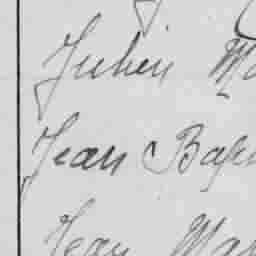 Julien Ma
Jean Bap
Jean Ma